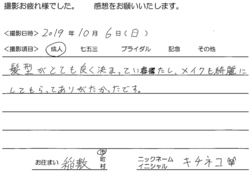 撮影お疲れ様でした。 感想をお願いいたします。
<撮影日時> 2019年10月6日(日)
<撮影項目> 成人 七五三 ブライダル 記念 その他
髪型がとても良く決まっていたし、メイクも綺麗に
してもらってありがたかったです。
お住まい 稲敷 市 町 村 ニックネーム イニシャル キチネコ